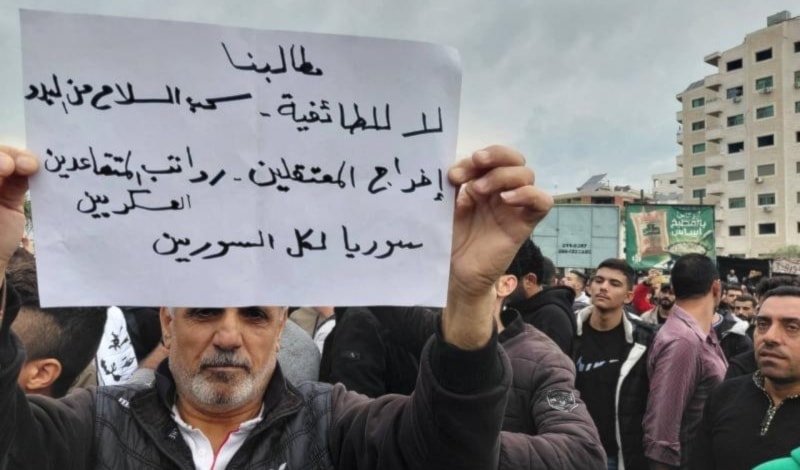 مطالبنا
لا للطائفية - سحب السلاح من البدو
إخراج المعتقلين - رواتب المتقاعدين
العسكريين
سوريا لكل السورين